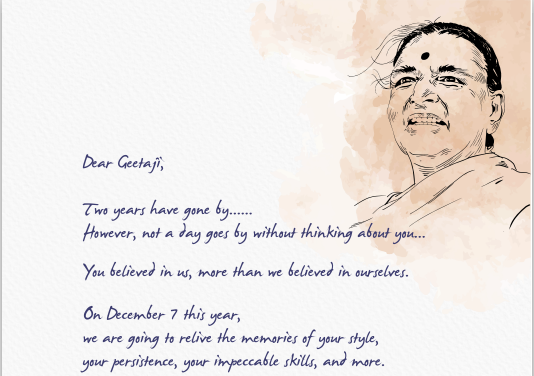 Dear Geetaji,
Two years have gone by......
However, not a day goes by without thinking about you...
You believed in us, more than we believed in ourselves.
On December 7 this year,
we are going to relive the memories of your style,
your persistence, your impeccable skills, and more.